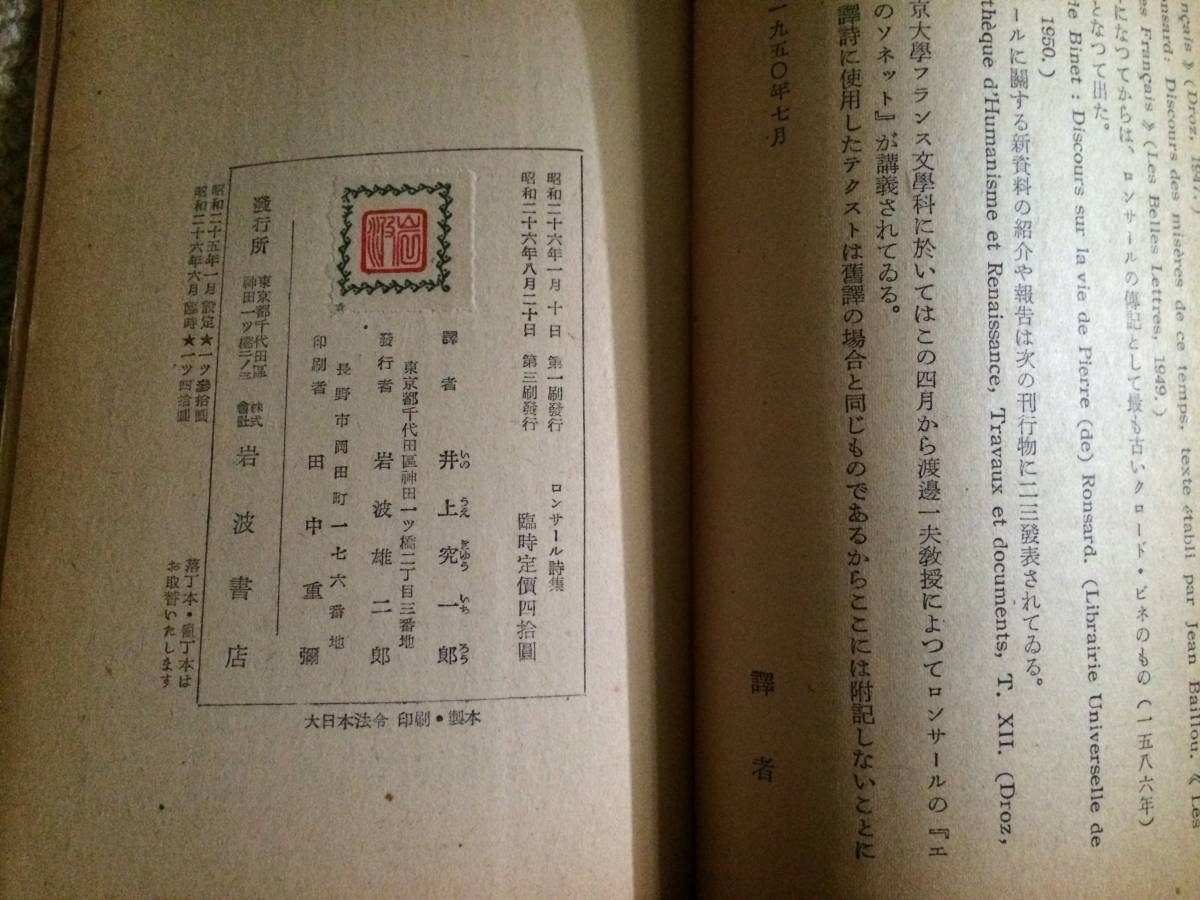 nçais 》 (Droz, 194
onsard: Discours des misères de ce temps, texte établi par Jean Baillou. 《 Les
es Français 》 (Les Belles Lettres, 1949.)
なつてからは、ロンサールの傳記として最も古いクロード・ビネのもの(一五八六年)
なつて出た。
de Binet : Discours sur la vie de Pierre (de) Ronsard. (Librairie Universelle de
1950.)
ールに關する新資料の紹介や報告は次の刊行物に二三發表されてゐる。
thèque d'Humanisme et Renaissance, Travaux et documents, T. XII. (Droz,
京大學フランス文學科に於いてはこの四月から渡邊一夫敎授によつてロンサールの『エ
のソネット』が講義されてゐる。
譯詩に使用したテクストは舊譯の場合と同じものであるからここには附記しないことに
一九五〇年七月
譯者
ロンサール詩集
臨時定價四拾圓
昭和二十六年一月十日 第一刷發行
昭和二十六年八月二十日 第三刷發行
岩波
譯者 井上究一郎
いのうえきゆういちろう
東京都千代田區神田一ツ橋二丁目三番地
發行者 岩波雄二郎
長野市岡田町一七六番地
印刷者 田中重彌
發行所 東京都千代田區神田一ツ橋二ノ三 株式會社 岩波書店
昭和二十五年一月設定★一ツ參拾圓
昭和二十六年六月臨時★一ツ四拾圓
落丁本・亂丁本はお取替いたします
大日本法令 印刷・製本